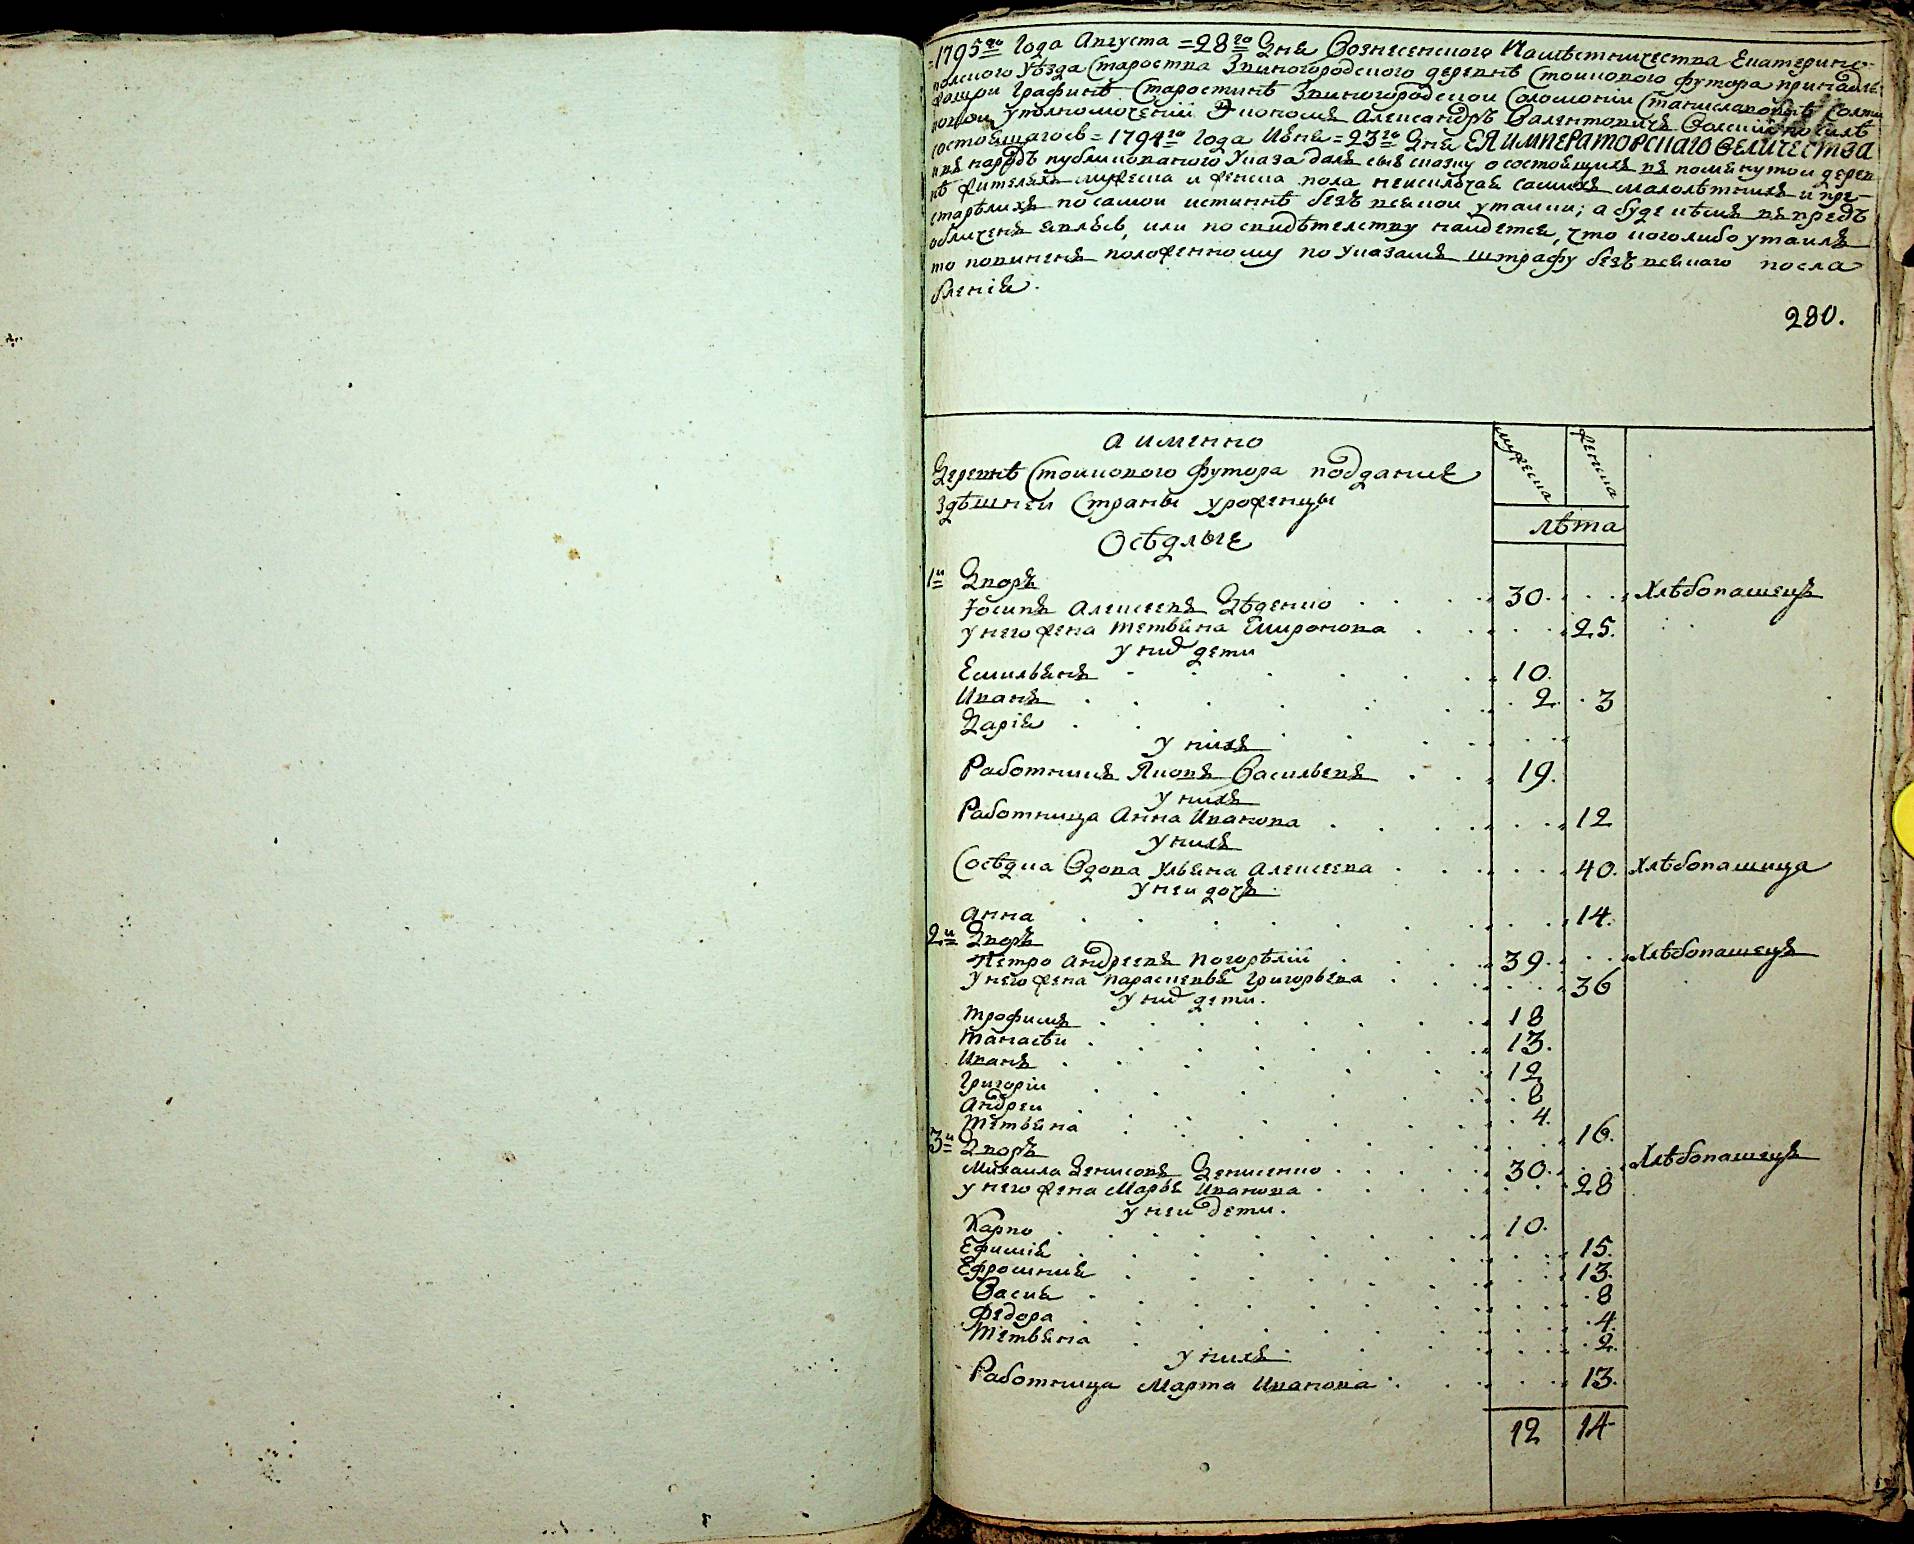 1795го года Августа 28го дня Вознесенского Намѣстничества Екатерино-
полского уѣзда Староства Звиногородского деревнѣ Стоикового футора принадле
жащои Графинѣ Старостинѣ Звиногородскои Соломонiи Станиславовнѣ Солти
ковои уполномоченiи Экономъ Александръ Валентовичъ силѣ
состоявшагось 1794го года Июня 23го дня ЕЯ ИМПЕРАТОРСКАГО ВЕЛИЧЕСТВА
и въ народъ публикованого указа далъ сыю сказку о состоящихъ въ помянутои дерев
нѣ жителяхъ мужеска и женска пола неисключая самихъ малолѣтнихъ и пре-
старѣлихъ по самои истиннѣ безъ всякои утаики; а буде кѣмъ въ предъ
обличенъ явлюсь, или по свидѣтелству наидется, что коголибо утаилъ
то повиненъ положенному по указамъ штрафу безъ всякаго посла
бленiя.
280.
а именно
Деревнѣ Стоикового футора поддание
здѣшнеи Страны уроженцы
Осѣдлые
мужеска женска
лѣта
1й Дворъ
Iосипъ Алексеевъ Дѣденко 30. Хлѣбопашецъ
у него жена Тетьяна Емиронова 25.
у них дети
Емильянъ 10.
Иванъ 2
Дарiя 3
у нихъ
Работникъ Яковъ Васильевъ 19.
у нихъ
Работница Анна Иванова 12
у нихъ
Сосѣдка Вдова Ульяна Алексеева 40. Хлѣбопашица
у неи дочъ
Анна 14.
2й Дворъ
Петро Андреевъ Погорѣлiй 39. Хлѣбопашецъ
у него жена Парасковья Григорьева 36
у них дети.
Трофимъ 18
Танасѣи 13.
Иванъ 12
Григорiи 8
Андреи 4.
Тетьяна 16.
3й Дворъ
Михаила Денисовъ Денисенко 30. Хлѣбопашецъ
у него жена Марья Иванова 28
у неи дети.
Карпо 10.
Ефимiя 15.
Ефросиния 13.
Васия 8
Федора 4.
Тетьяна 2.
у нихъ
Работница Марта Иванова 13.
12 14